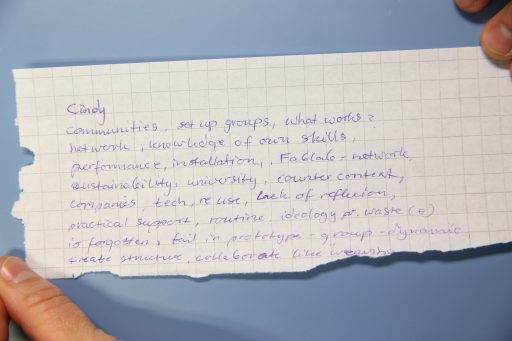 Cindy
Communities, set up groups, what works?
network, knowledge of own skills,
performance, installation, Fablab-network,
sustainability, university, counter context,
companies, tech, re use, Lack of reflexion,
practical support, routine, ideology of waste (e)
is forgotten, fail in prototype-group-dynamic
create structure, collaborate like